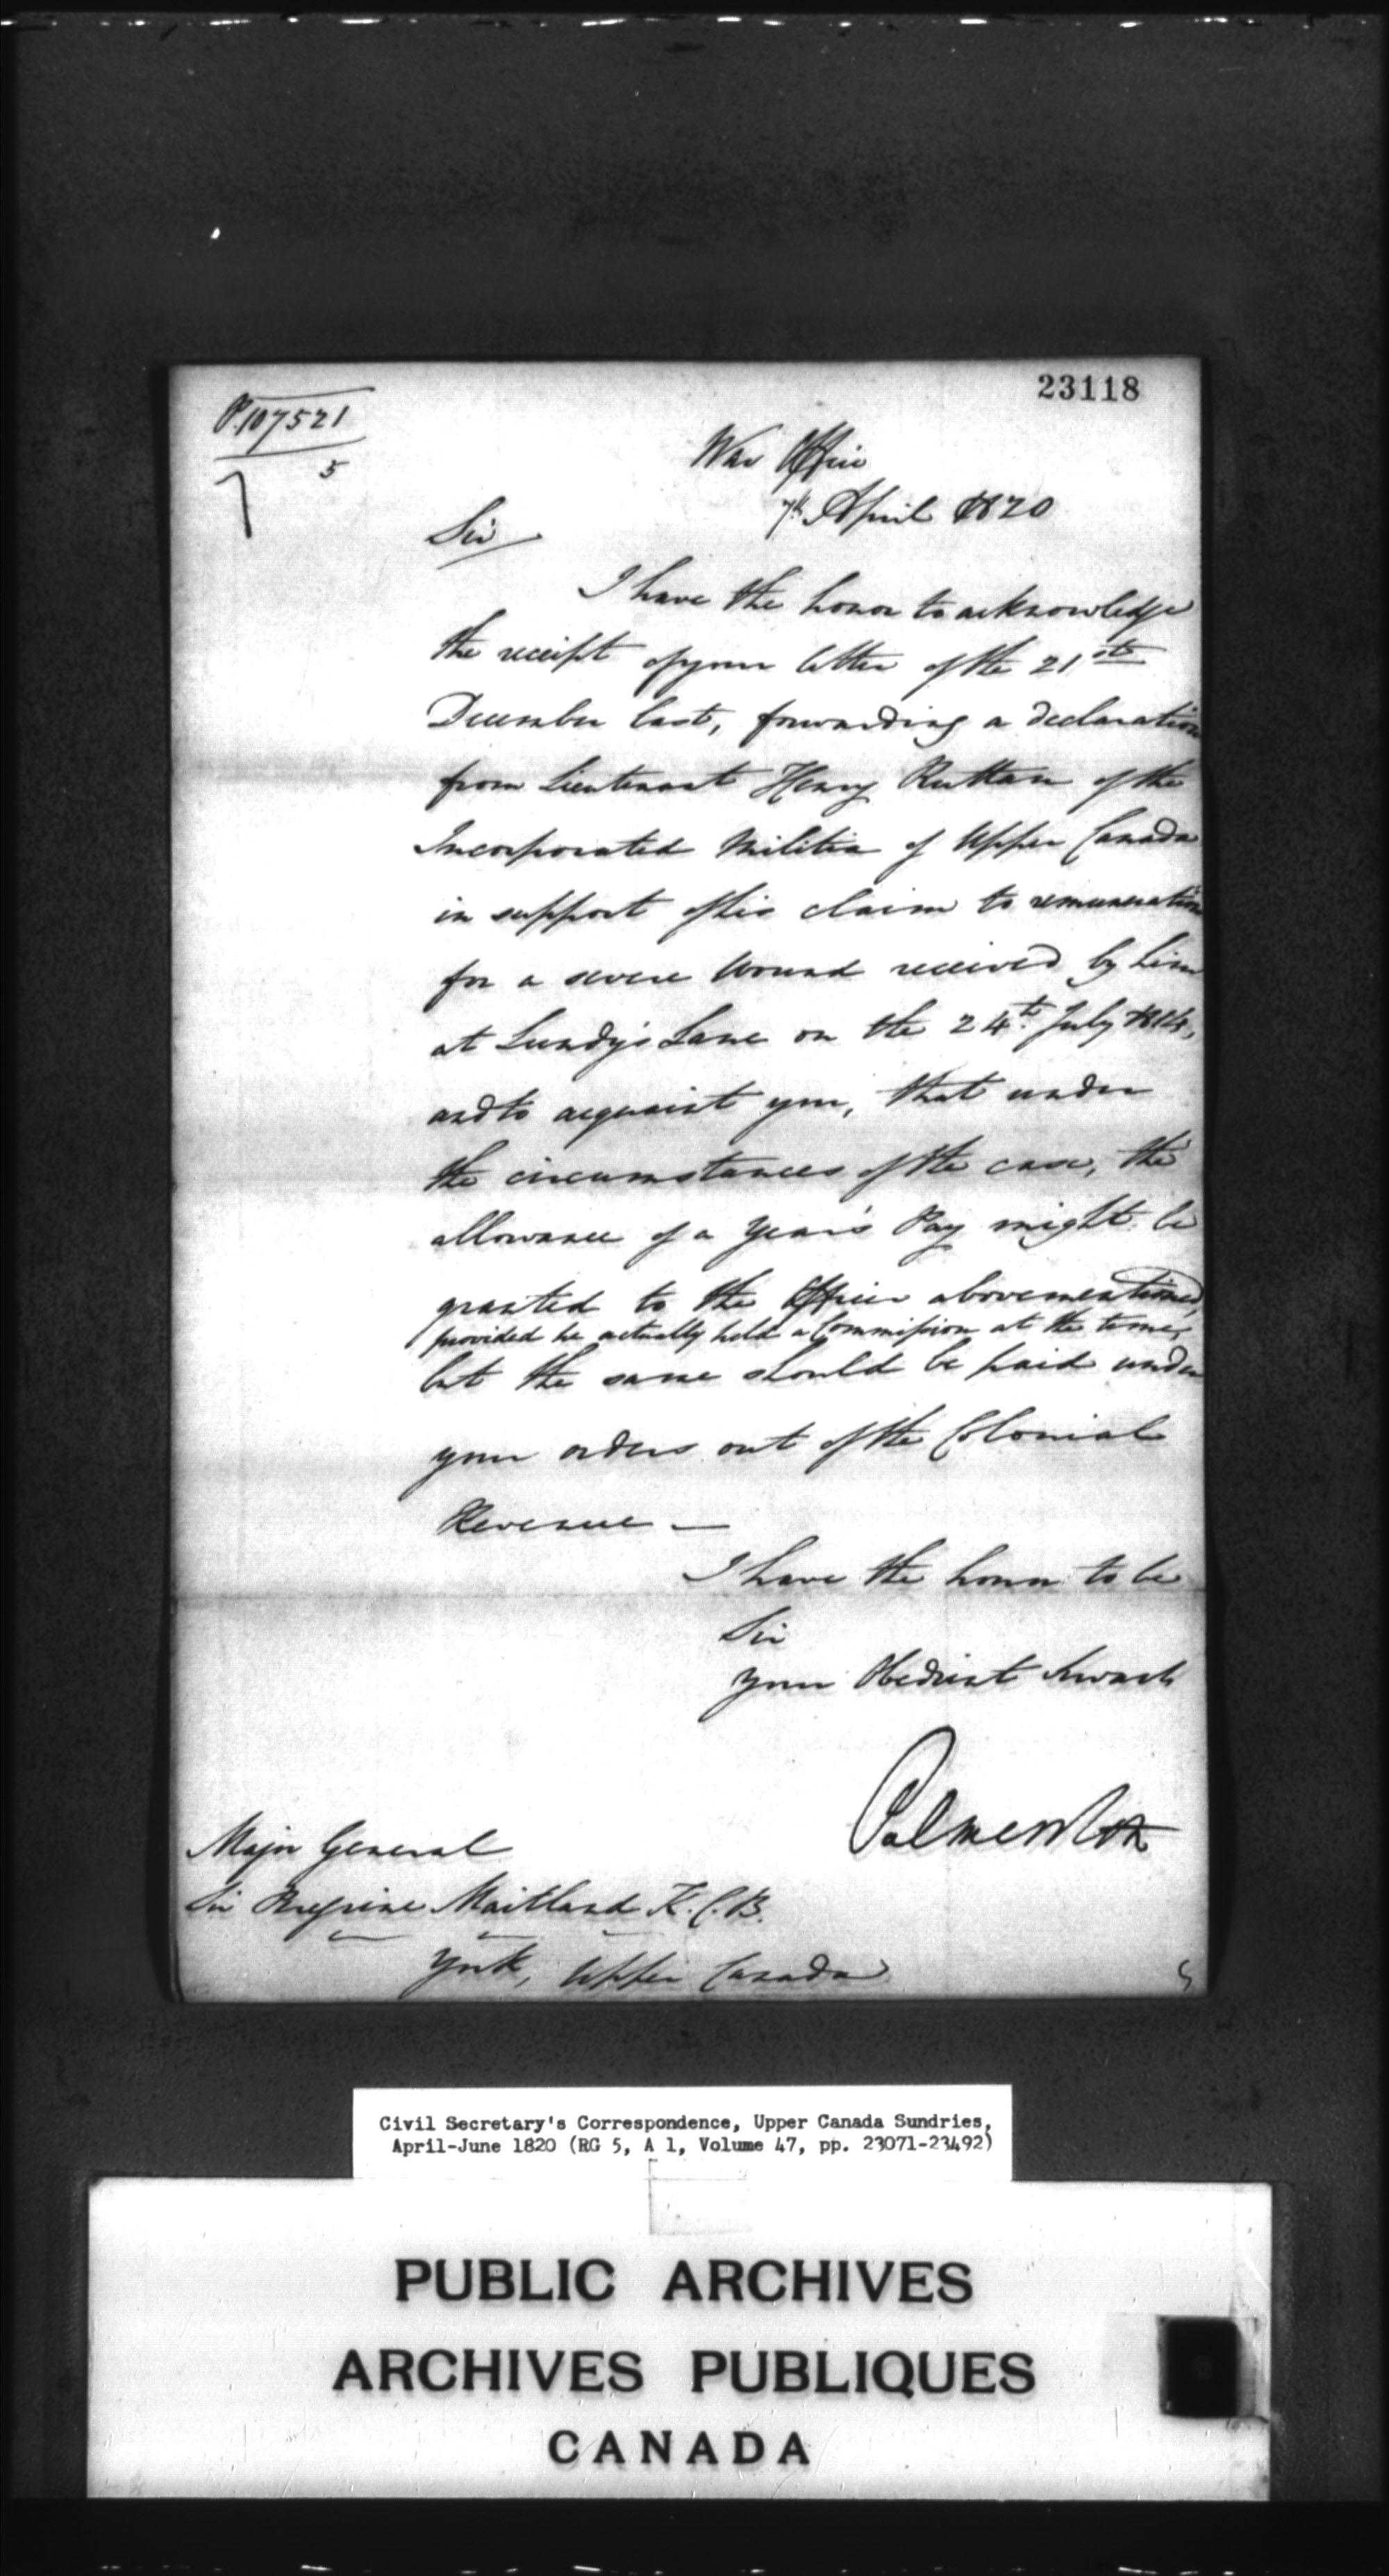 23118
P.107521
5
War Office
7th April 1820
Sir
I have the honor to acknowledge
the receipt of your letter of the 21st
December last, forwarding a declaration
from Lieutenant Henry Ruttan of the
Incorporated Militia of Upper Canada
in support of his claim to remuneration
for a severe Wound received by him
at Lundy's Lane on the 24th. July 1814,
and to acquaint you, that under
the circumstances of the case, the
allowance of a Year's Pay might be
granted to the Officer abovementioned,
provided he actually held a Commission at the time,
but the same should be paid under
your orders out of the Colonial
Revenue —
I have the honor to be
Sir
Your Obedient Servant
Palmerston
Major General
Sir Peregrine Maitland K.C.B.
York, Upper Canada
Civil Secretary's Correspondence, Upper Canada Sundries,
April-June 1820 (RG 5, A 1, Volume 47, pp. 23071-23492)
PUBLIC ARCHIVES
ARCHIVES PUBLIQUES
CANADA